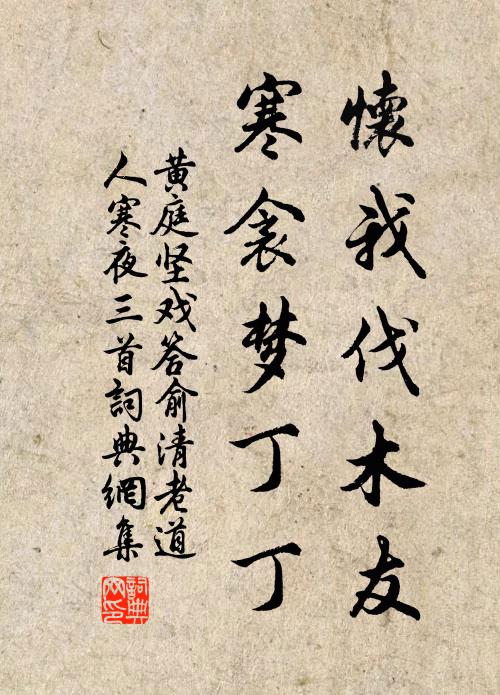 懷我伐木友
寒衾梦丁丁
黄庭坚戏答俞清老道
人寒夜三首詞典網集
詞典网印